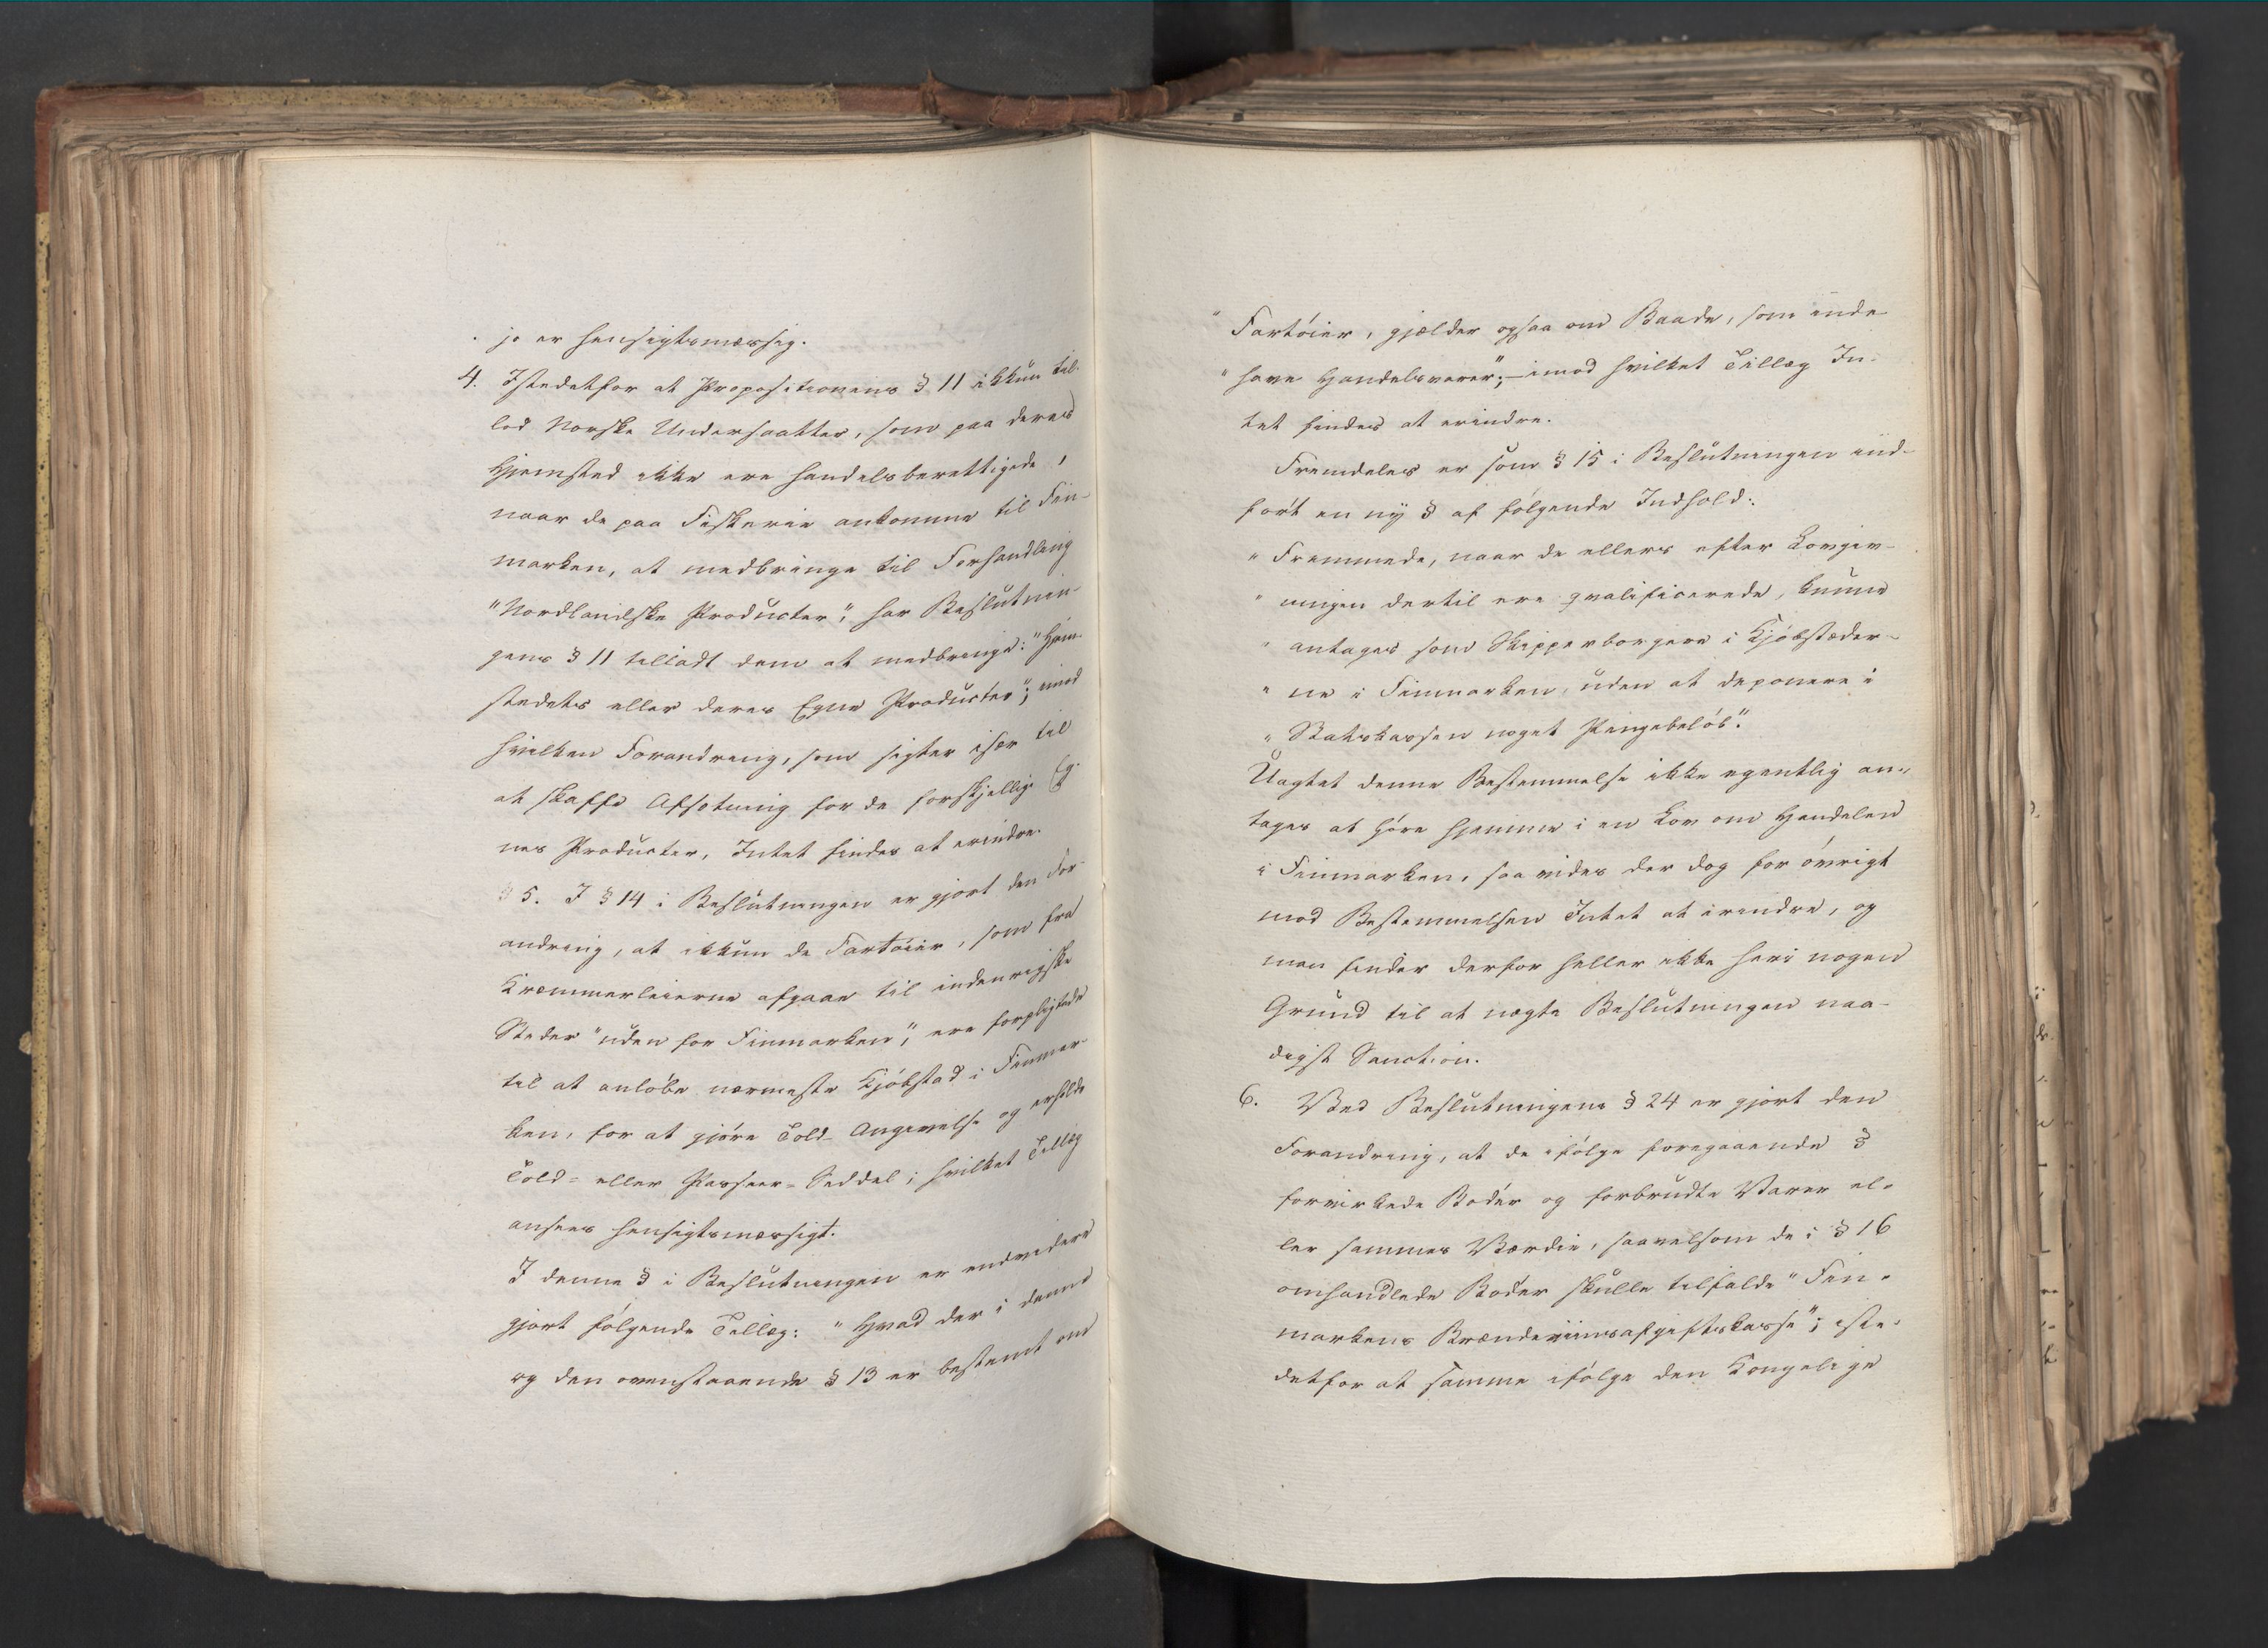 jo er hensigtsmæssig.
4. Istedetfor at Propositionens § 11 ikkun til-
lod Norske Undersaatter, som paa deres
Hjemsted ikke ere handelsberettigede,
naar de paa Fiskerie ankomme til Fin-
marken, at medbringe til Forhandling
"Nordlandske Producter", har Beslutnin-
gens § 11 tilladt dem at medbringe: "Hjem-
stedets eller deres Egns Producter"; imod
hvilken Forandring, som sigter især til
at skaffe Afsetning for de forskjellige Eg-
nes Producter, Intet findes at erindre.
5. I § 14 i Beslutningen er gjort den For-
andring, at ikkun de Fartøier, som fra
Kræmmerleierne afgaae til indenrigske
Steder "uden for Finmarken", ere forpligtede
til at anløbe nærmeste Kjøbstad i Finmar-
ken, for at gjøre Told-Angivelse og erholde
Told- eller Passeer-Seddel; hvilket Tillæg
ansees hensigtsmæssigt.
I denne § i Beslutningen er endvidere
gjort følgende Tillæg: "Hvad der i denne
og den ovenstaaende § 13 er bestemt om
" Fartøier, gjælder ogsaa om Baade, som inde-
" have Handelsvarer"; – imod hvilket Tillæg In-
tet findes at erindre.
Fremdeles er som § 15 i Beslutningen ind-
ført en ny § af følgende Indhold:
" Fremmede, naar de ellers efter Lovgiv-
" ningen dertil ere qvalificerede, kunne
" antages som Skipperborgere i Kjøbstæder-
" ne i Finmarken, uden at deponere i
" Statskassen noget Pengebeløb".
Uagtet denne Bestemmelse ikke egentlig an-
tages at høre hjemme i en Lov om Handelen
i Finmarken, saa vides der dog for øvrigt
mod Bestemmelsen Intet at erindre, og
man finder derfor heller ikke heri nogen
Grund til at nægte Beslutningen naa-
digst Sanction.
6. Ved Beslutningens § 24 er gjort den
Forandring, at de ifølge foregaaende §
forvirkede Bøder og forbrudte Varer el-
ler sammes Værdie, saavelsom de i § 16
omhandlede Bøder skulle tilfalde "Fin-
markens Brændeviinsafgiftskasse"; iste-
detfor at samme ifølge den Kongelige